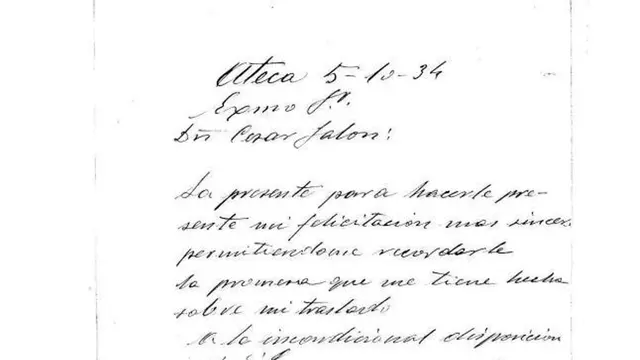 Ateca 5-10-34
Exmo Sr.
Dn Cesar Jalon:
La presente para hacerle pre-
sente mi felicitacion mas sincera
permitiendome recordarle
la promesa que me tiene hecha
sobre mi traslado
A la incondicional disposicion